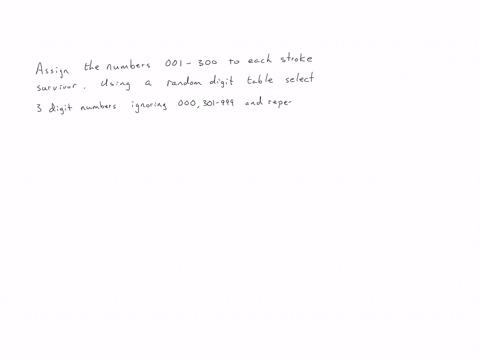 Assign the numbers 001-300 to each stroke
survivor. Using a random digit table select
3 digit numbers ignoring 000, 301-999 and repe-